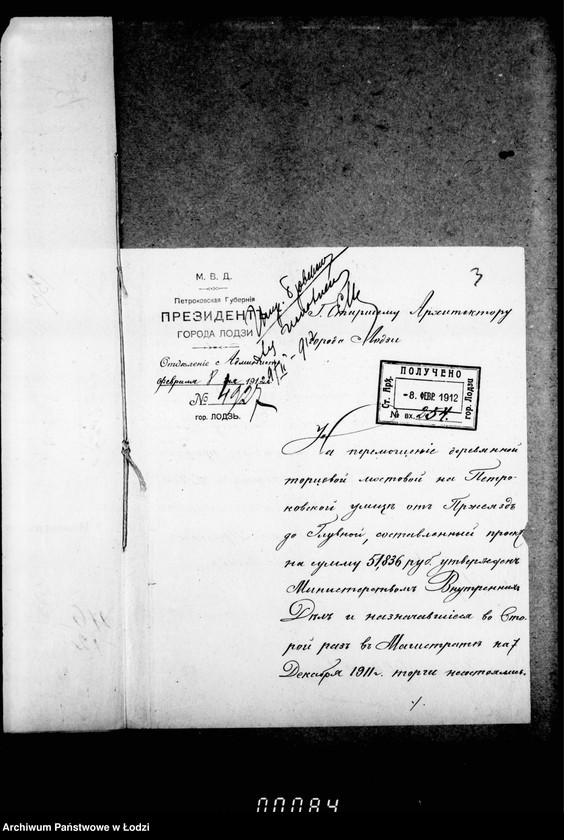 3
М. В. Д.
Петроковская Губернія
ПРЕЗИДЕНТЪ
ГОРОДА ЛОДЗИ
Отдѣленіе с. Админист.
февраля 8 дня 1912 г.
№ 4927
гор. ЛОДЗЬ.
Г. Старшему Архитектору
города Лодзи
ПОЛУЧЕНО
Ст. Арх.
-8. ФЕВР. 1912
гор. Лодзи
№ вх. 254.
На перемощеніе деревянной
торцевой мостовой на Петро-
ковской улицѣ отъ Пржеяздъ
до Главной, составленный проектъ
на сумму 51,836 руб. утвержденъ
Министерствомъ Внутреннихъ
Дѣлъ и назначавшіеся во Вто-
рой разъ въ Магистратѣ на 7
Декабря 1911 г. торги несостоялись.
./.
Archiwum Państwowe w Łodzi